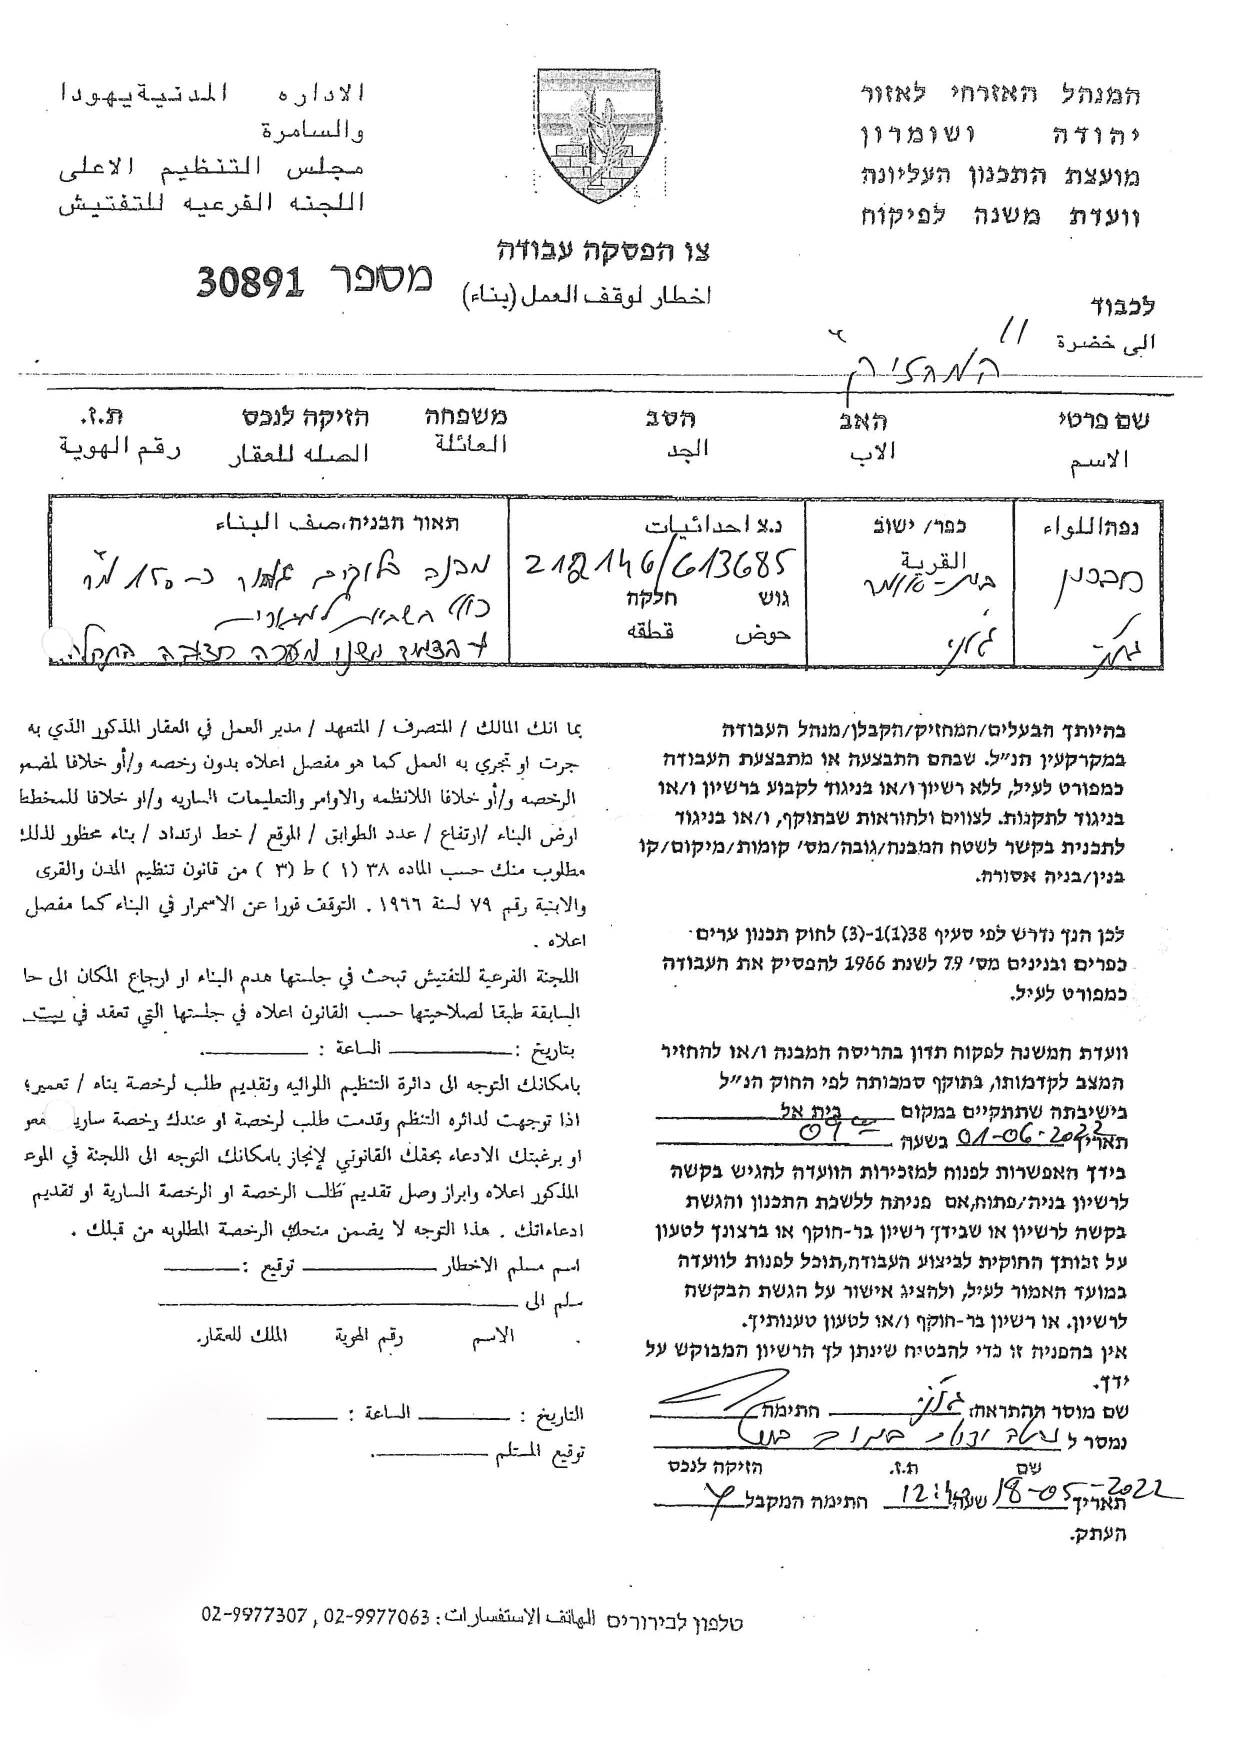 המנהל האזרחי לאזור
יהודה ושומרון
מועצת התכנון העליונה
וועדת משנה לפיקוח
الاداره المدنية يهودا
والسامرة
مجلس التنظيم الاعلى
اللجنه الفرعيه للتفتيش
צו הפסקה עבודה
اخطار لوقف العمل (بناء)
מספר 30891
לכבוד
الى خضرة
המחזיק
שם פרטי האב הסב משפחה הזיקה לנכס ת.ז.
الاسم الاب الجد العائلة الصله للعقار رقم الهوية
נפה\اللواء
כפר/ ישוב
القرية
נ.צ احداثيات
212146/613685
גוש חלקה
حوض قطقه
תאור הבניה،صف البناء
מבנה בלוקים
כ-150 מ"ר
בהיותך הבעלים/המחזיק/הקבלן/מנהל העבודה
במקרקעין הנ"ל. שבהם התבצעה או מתבצעת העבודה
כמפורט לעיל, ללא רשיון ו/או בניגוד לקבוע ברשיון ו/או
בניגוד לתקנות. לצווים ולהוראות שבתוקף, ו/או בניגוד
לתכנית בקשר לשטח המבנה/גובה/מס' קומות/מיקום/קו
בנין/בניה אסורה.
לכן הנך נדרש לפי סעיף 38(1)-(3) לחוק תכנון ערים
כפרים ובנינים מס' 79 לשנת 1966 להפסיק את העבודה
כמפורט לעיל.
וועדת המשנה לפקוח תדון בהריסה המבנה ו/או להחזיר
המצב לקדמותו, בתוקף סמכותה לפי החוק הנ"ל
בישיבתה שתתקיים במקום בית אל
תאריך 01-06-2022 בשעה 09
בידך האפשרות לפנות למזכירות הוועדה להגיש בקשה
לרשיון בניה/פתוח,אם פניתה ללשכת התכנון והגשת
בקשה לרשיון או שבידך רשיון בר-תוקף או ברצונך לטעון
על זכותך החוקית לביצוע העבודה,תוכל לפנות לוועדה
במועד האמור לעיל, ולהציג אישור על הגשת הבקשה
לרשיון. או רשיון בר-תוקף ו/או לטעון טענותיך.
אין בהפניה זו כדי להבטיח שינתן לך הרשיון המבוקש על
ידך.
שם מוסר ההתראה: חתימה
נמסר ל
שם ת.ז. הזיקה לנכס
תאריך 18-05-2022 שעה חתימה המקבל
העתק.
بما انك المالك / المتصرف / المتعهد / مدير العمل في العقار المذكور الذي به
جرت او تجري به العمل كما هو مفصل اعلاه بدون رخصه و/أو خلافا لمضمو
الرخصه و/أو خلافا اللانظمه والاوامر والتعليمات الساريه و/او خلافا للمخطط
ارض البناء /ارتفاع / عدد الطوابق / الموقع / خط ارتداد / بناء محظور لذلك
مطلوب منك حسب الماده ٣٨ (١ ) ط (٣ ) من قانون تنظيم المدن والقرى
والابنية رقم ٧٩ لسنة ١٩٦٦ . التوقف فورا عن الاسمرار في البناء كما مفصل
اعلاه .
اللجنة الفرعية للتفتيش تبحث في جلستها هدم البناء او ارجاع المكان الى حا
السابقة طبقا لصلاحيتها حسب القانون اعلاه في جلستها التي تعقد في بيت
بتاريخ : الساعة :
بامكانك التوجه الى دائرة التنظيم اللوائيه وتقديم طلب لرخصة بناء / تعمير؛
اذا توجهت لدائره التنظم وقدمت طلب لرخصة او عندك رخصة ساريـ فعو
او برغبتك الادعاء بحقك القانوني لإنجاز بامكانك التوجه الى اللجنة في الموع
المذكور اعلاه وابراز وصل تقديم طلب الرخصة او الرخصة السارية او تقديم
ادعاءاتك . هذا التوجه لا يضمن منحك الرخصة المطلوبه من قبلك .
اسم مسلم الاخطار توقيع :
سلم الى
الاسم رقم الهوية الملك للعقار.
التاريخ : الساعة :
توقيع المستلم
טלפון לבירורים الهاتف الاستفسارات: 02-9977063 , 02-9977307